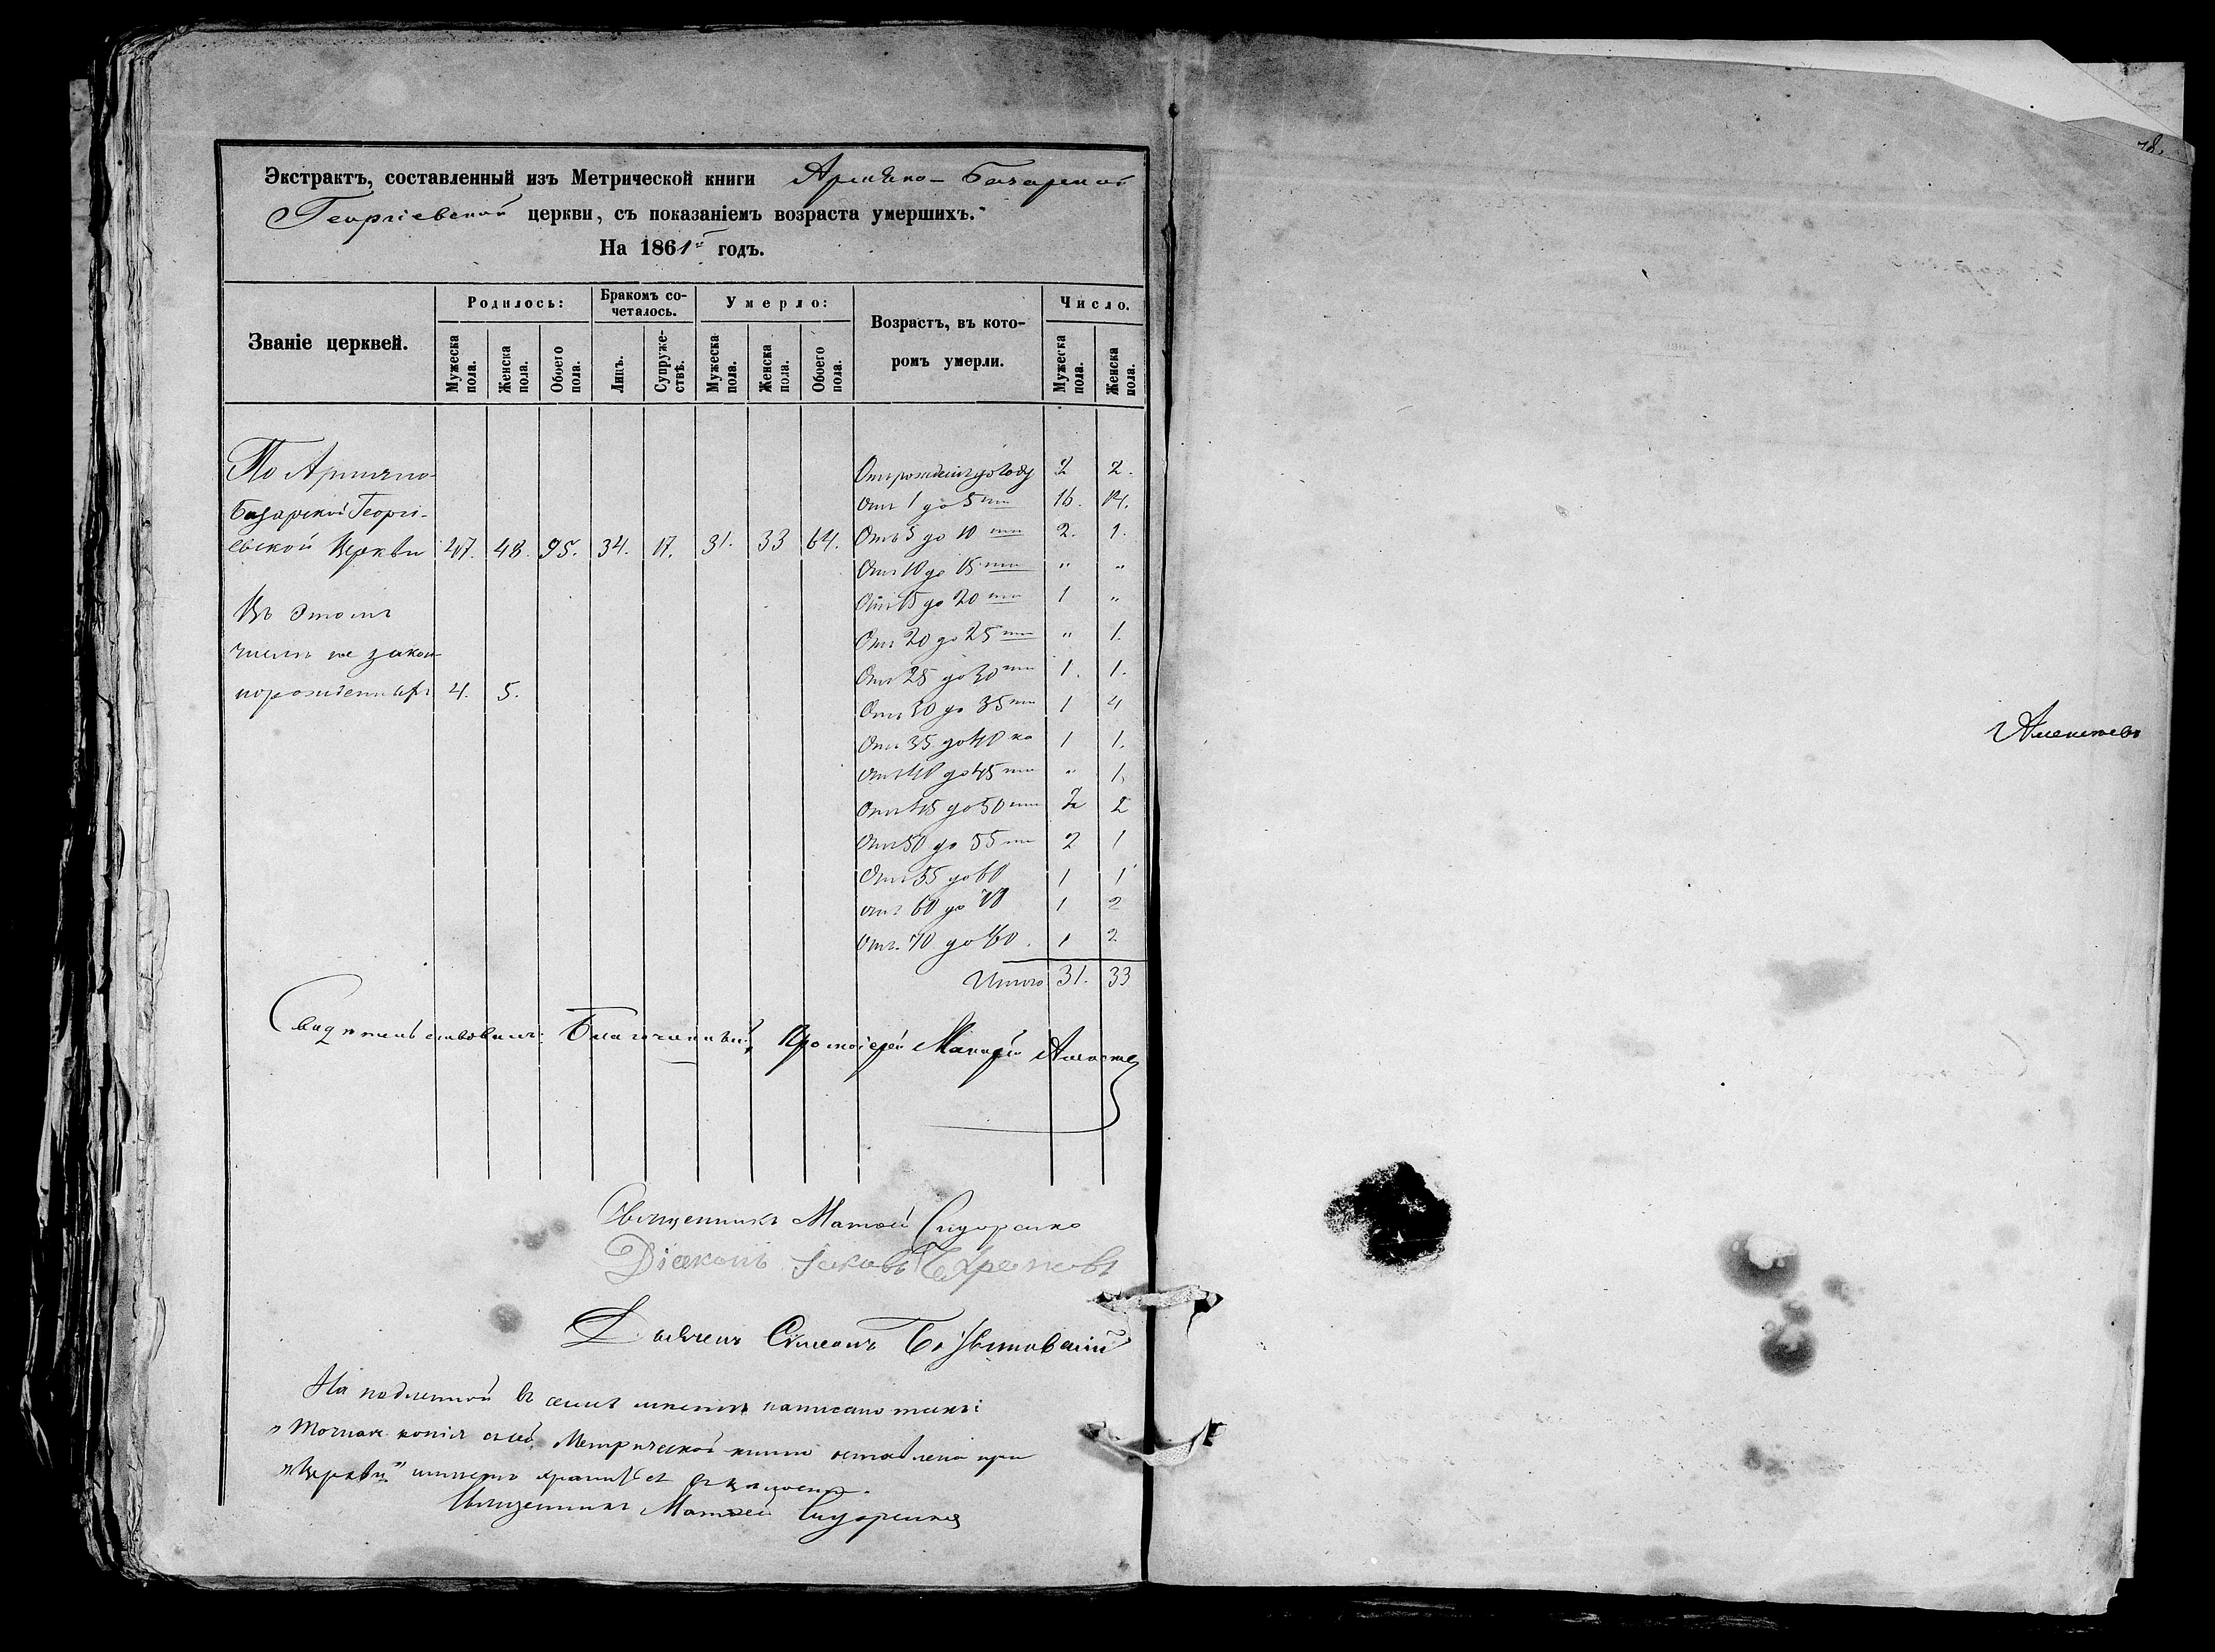 Экстрактъ, составленный изъ Метрической книги Армяно-Базарской
Георгіевской церкви, съ показаніемъ возраста умершихъ.
На 1861й годъ.
Званіе церквей.
Родилось:
Бракомъ сочеталось.
Умерло:
Возрастъ, въ которомъ умерли.
Число.
Мужеска пола.
Женска пола.
Обоего пола.
Лицъ.
Супружествъ.
Мужеска пола.
Женска пола.
Обоего пола.
Мужеска пола.
Женска пола.
По Армяно-
Базарской Георгі-
евской Церкви 47. 48. 95. 34. 17. 31. 33 64.
Въ этомъ
числѣ не закон-
норожденныхъ 4. 5.
Отъ рожденія до году 2 2.
Отъ 1 до 5 ти 16. 14.
Отъ 5 до 10 ти 2. 1.
Отъ 10 до 15 ти " "
Отъ 15 до 20 ти 1 "
Отъ 20 до 25 ти " 1.
Отъ 25 до 30 ти 1. 1.
Отъ 30 до 35 ти 1 4
Отъ 35 до 40 ка 1 1.
Отъ 40 до 45 ти " 1.
Отъ 45 до 50 ти 2 2
Отъ 50 до 55 ти 2 1
Отъ 55 до 60 1 1
отъ 60 до 70 1 2
Отъ 70 до 1 2
Итого 31. 33
Свидѣтельствовалъ: Благочинный, Протоіерей
Священникъ Матѳей Сидоренко
Діаконъ Іаковъ
Симеонъ
На подлинной въ семъ мѣстѣ написано такъ:
"Точная копія сей Метрической книги оставлена при
"Церкви"
Священникъ Матѳей Сидоренко